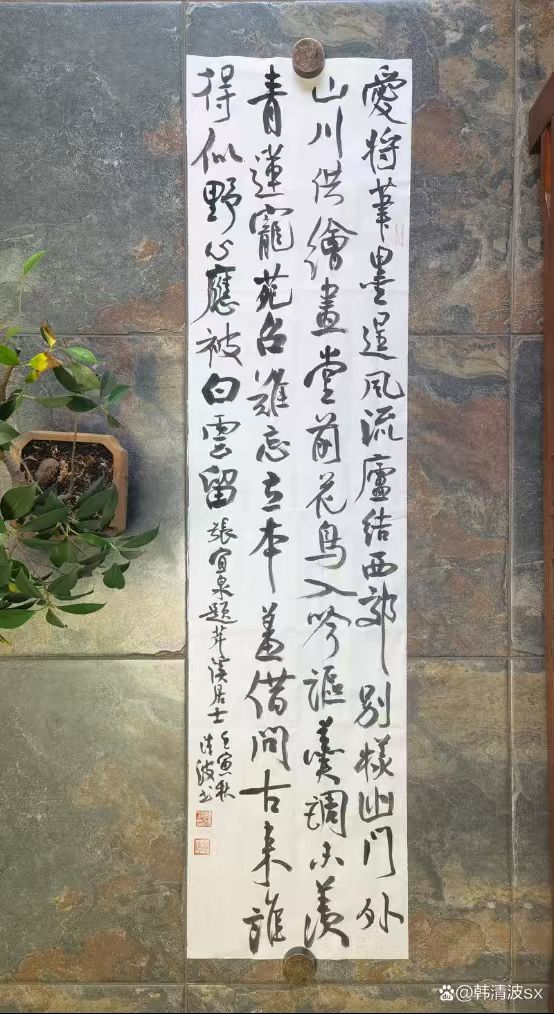 愛將筆墨逞風流廬結西郊別樣幽門外
山川供繪畫堂前花鳥入吟謳羹調未羨
青蓮寵苑召難忘立本羞借問古來誰
得似野心應被白雲留張宜泉題芹溪居士
壬寅秋
清波书
@韩清波sx